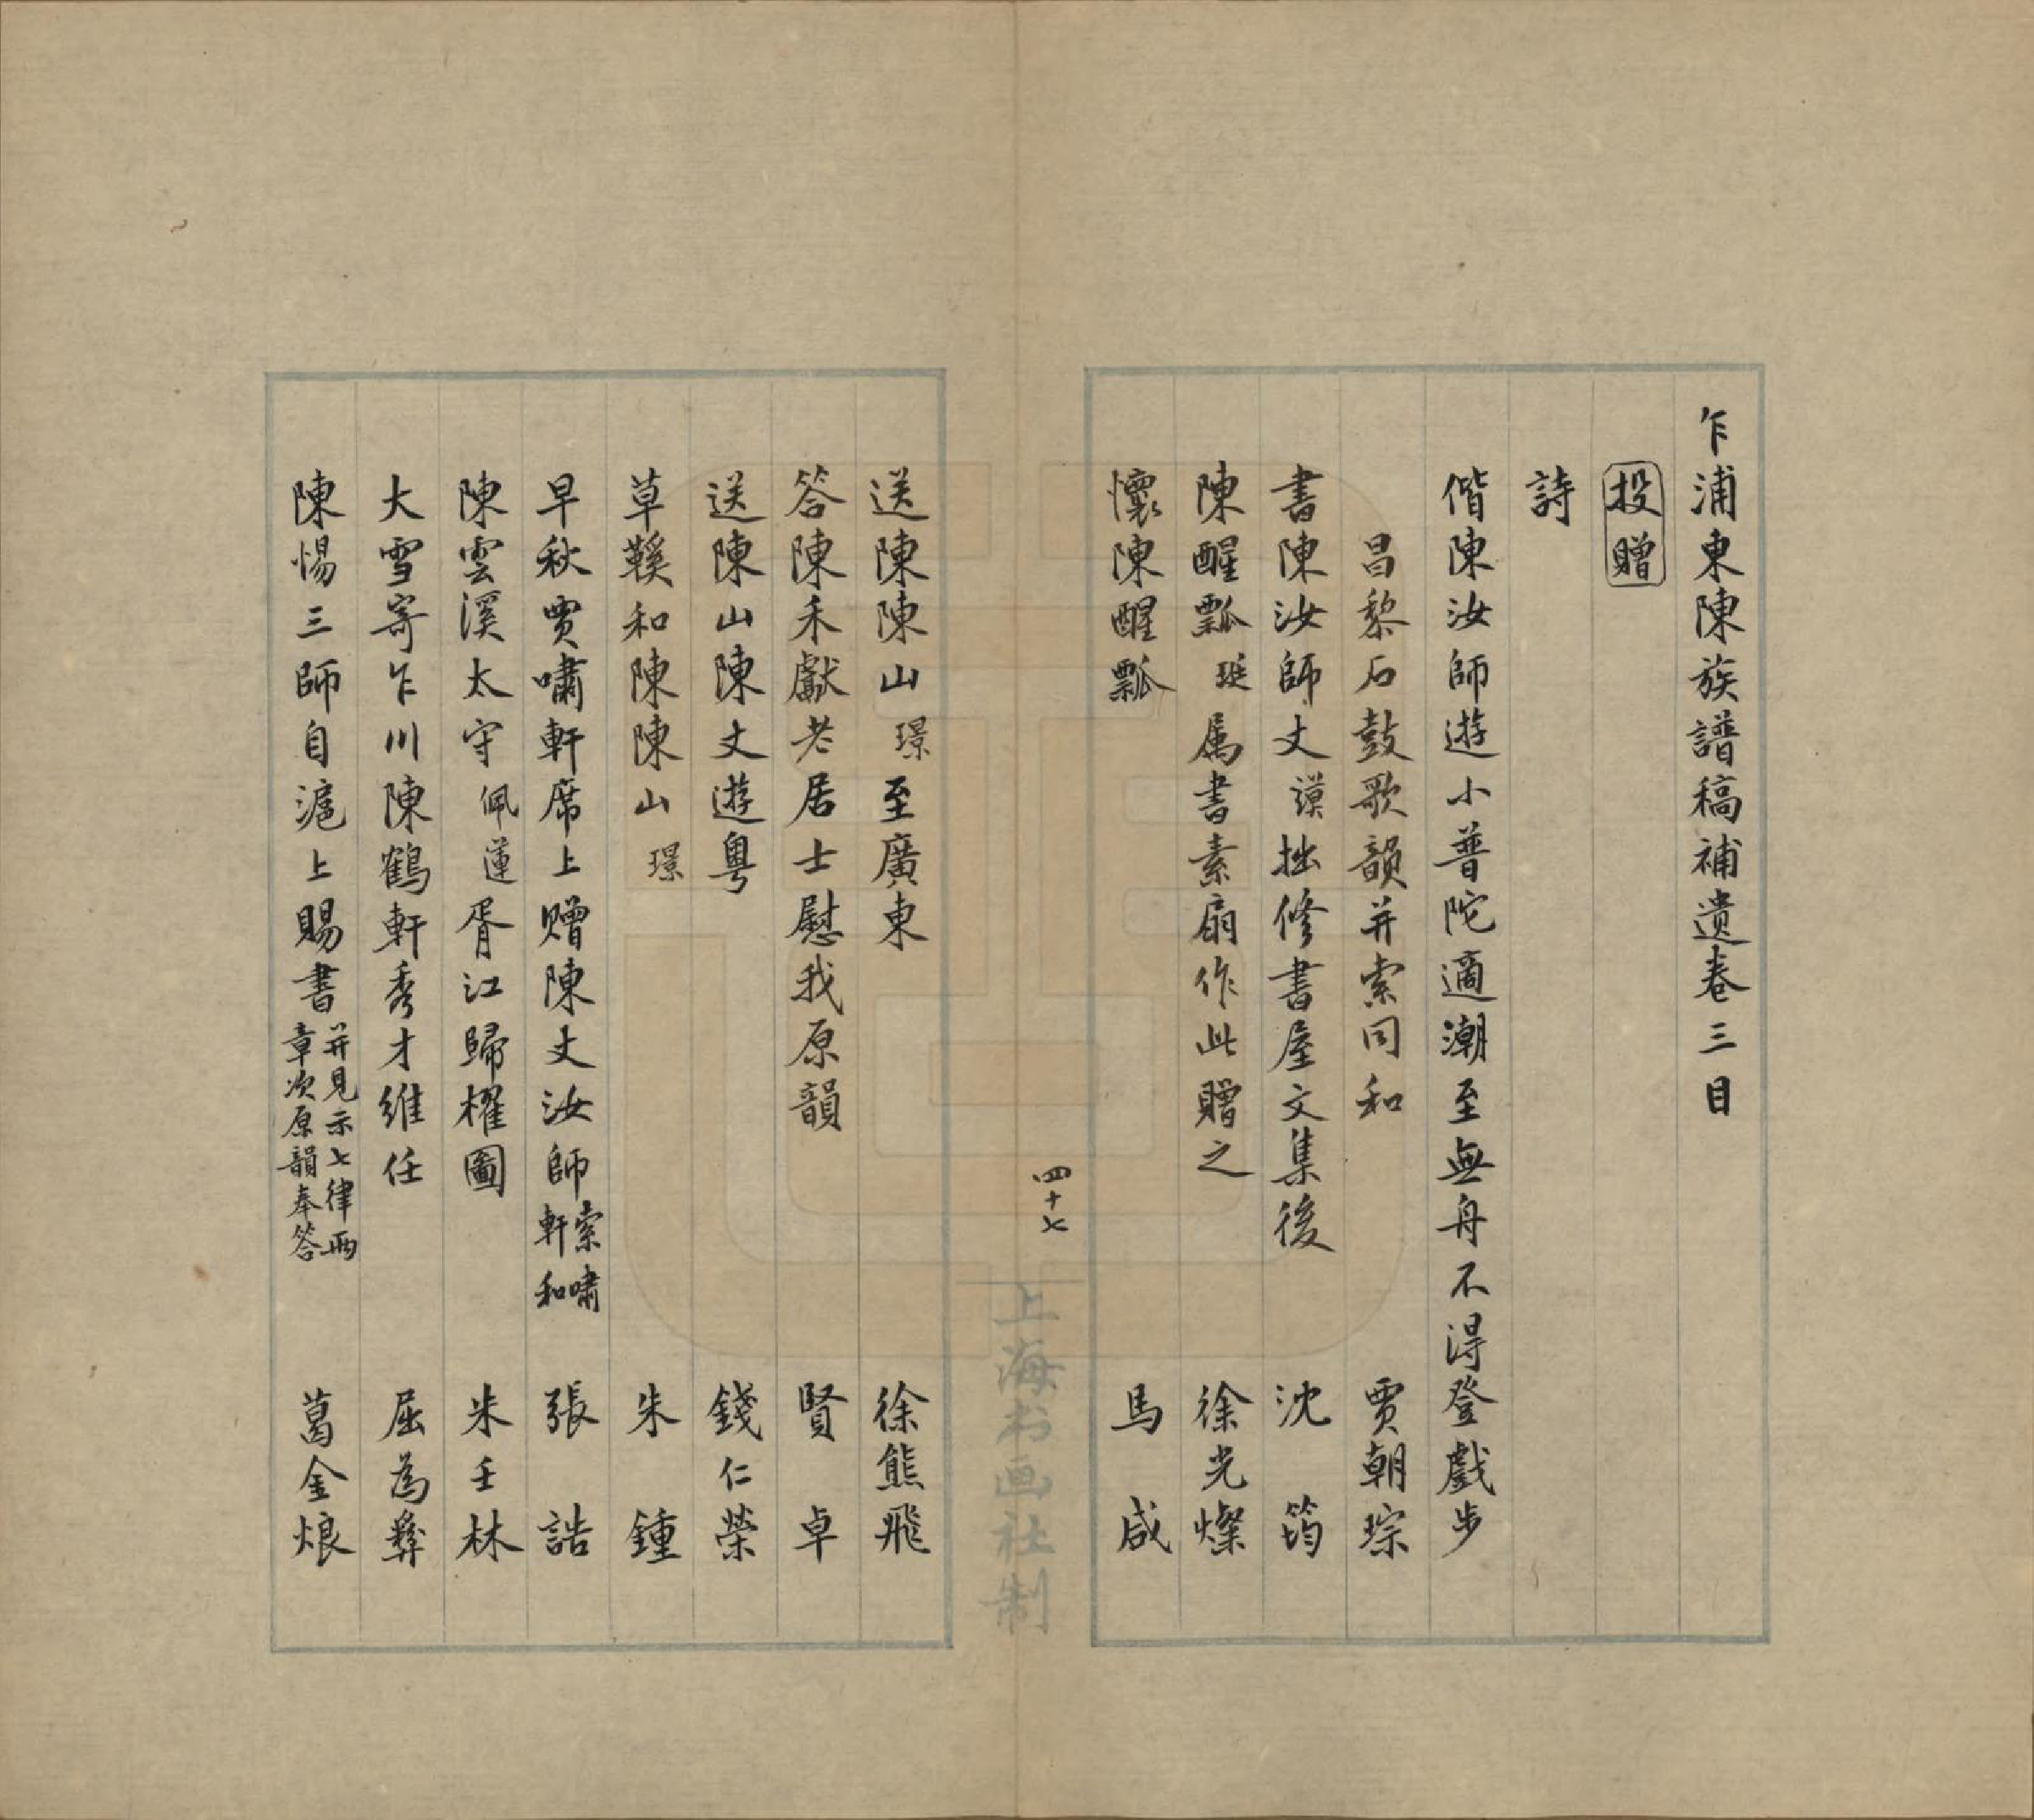 乍浦東陳族譜稿補遺卷三目
投贈
詩
偕陳汝師遊小普陀適潮至無舟不得登戲步
昌黎石鼓歌韻并索同和 贾朝琮
書陳汝師丈謨拙修書屋文集後 沈筠
陳醒瓢珽属書素扇作此贈之 徐光燦
懷陳醒瓢 馬咸
四十七
上海书画社制
送陳陳山璟至廣東 徐熊飛
答陳禾獻老居士慰我原韻 賢卓
送陳山陳丈遊粤 錢仁榮
草鞵和陳陳山璟 朱鍾
早秋贾嘯軒席上赠陳丈汝師索嘯軒和 張誥
陳雲溪太守佩蓮胥江歸櫂圖 朱壬林
大雪寄乍川陳鶴軒秀才維任 屈為彝
陳惕三師自滬上賜書并見示七律兩章次原韻奉答 葛金烺